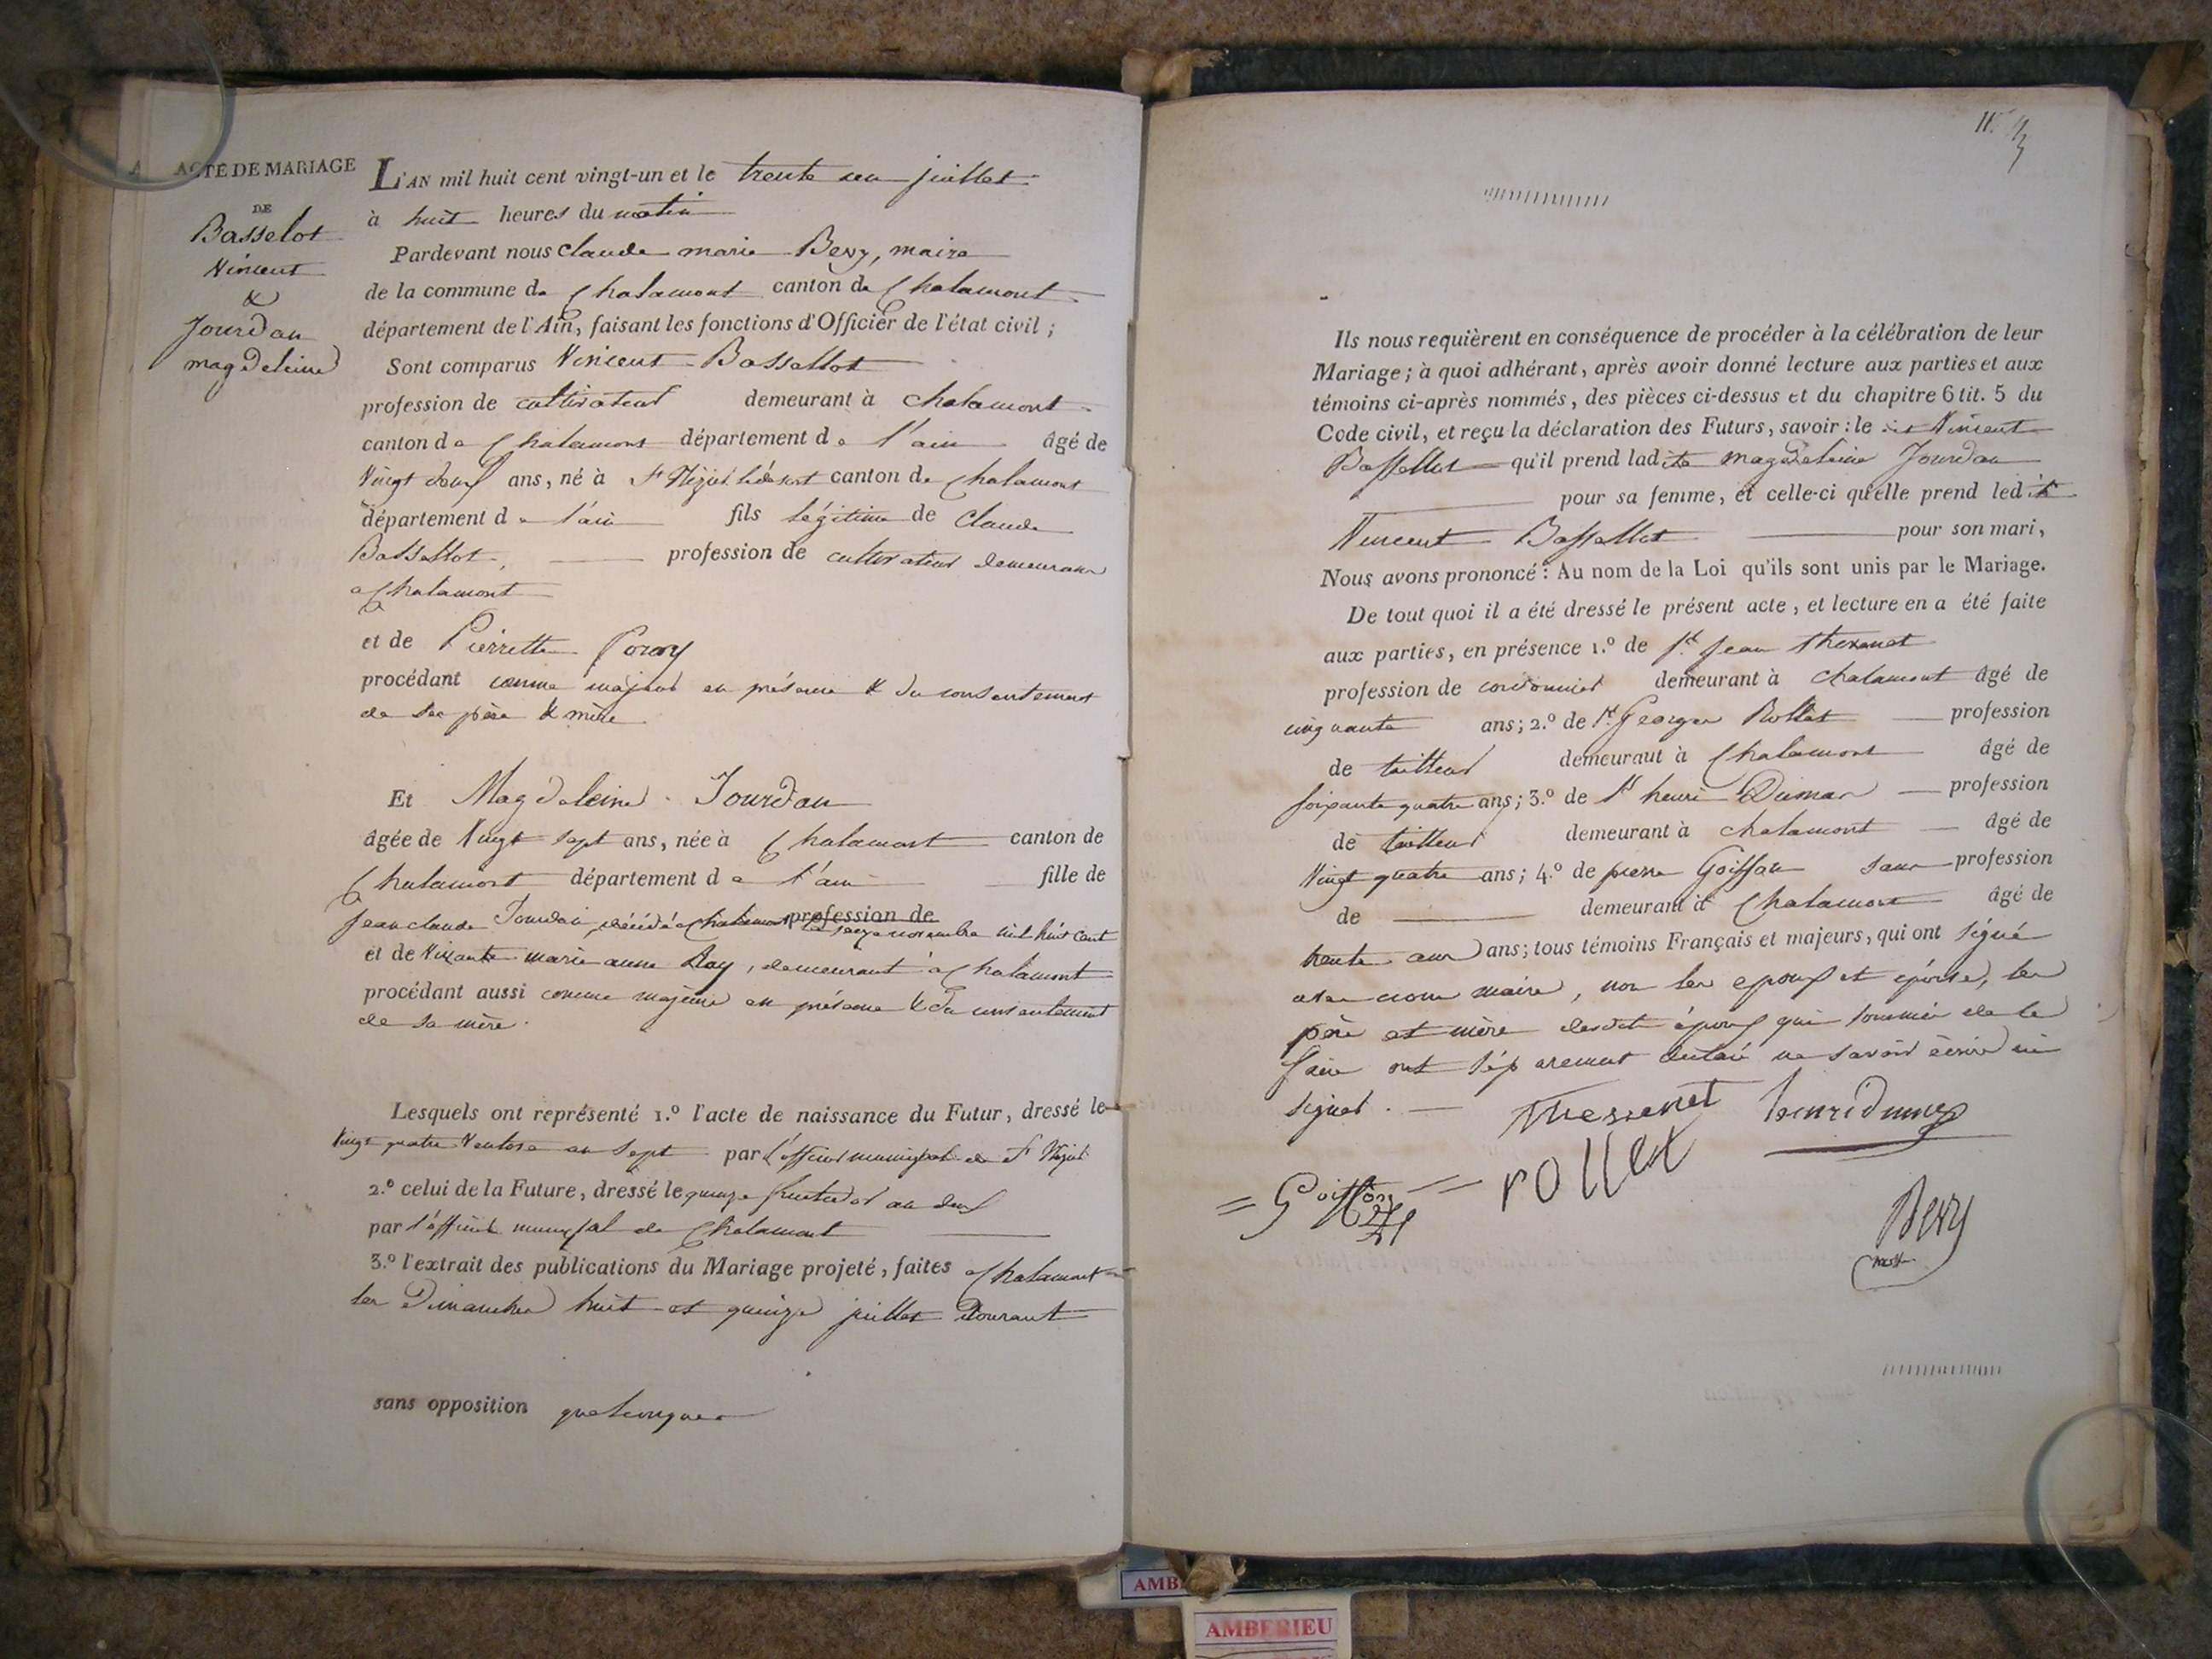 ACTE DE MARIAGE
DE
Basselot
Vincent
&
Jourdan
magdeleine
L'AN mil huit cent vingt-un et le trente un juillet
à huit heures du matin
Pardevant nous Claude marie Bevy, maire
de la commune de Chalamont canton de Chalamont
département de l'Ain, faisant les fonctions d'Officier de l'état civil ;
Sont comparus Vincent Bassellot
profession de cultivateur demeurant à Chalamont
canton de Chalamont département de l'ain âgé de
Vingt deux ans, né à St canton de Chalamont
département de l'ain fils légitime de Claude
Bassellot, profession de cultivateur demeurant
a Chalamont
et de Pierrette
procédant comme majeur en présence & du consentement
de ses père & mère
Et Magdeleine Jourdan
âgée de Vingt sept ans, née à Chalamont canton de
Chalamont département de l'ain fille de
Jean claude Jourdan, décédé a Chalamont profession de
le seize novembre mil huit cent
et de vivante marie anne Ray, demeurant à Chalamont
procédant aussi comme majeure en présence & du consentement
de sa mère.
Lesquels ont représenté 1.º l'acte de naissance du Futur, dressé le
Vingt quatre Ventose an sept par l'officier municipal de St
2.º celui de la Future, dressé le quinze fructidor an deux
par l'officier municipal de Chalamont
3.º l'extrait des publications du Mariage projeté, faites a Chalamont
les Dimanches huit et quinze juillet Courant
sans opposition quelconques
Ils nous requièrent en conséquence de procéder à la célébration de leur
Mariage ; à quoi adhérant, après avoir donné lecture aux parties et aux
témoins ci-après nommés, des pièces ci-dessus et du chapitre 6 tit. 5 du
Code civil, et reçu la déclaration des Futurs, savoir : le dit Vincent
Bassellot qu'il prend ladite magdeleine Jourdan
pour sa femme, et celle-ci qu'elle prend ledit
Vincent Bassellot pour son mari,
Nous avons prononcé : Au nom de la Loi qu'ils sont unis par le Mariage.
De tout quoi il a été dressé le présent acte, et lecture en a été faite
aux parties, en présence 1.º de Sr. Jean Thevenet
profession de cordonnier demeurant à Chalamont âgé de
cinquante ans ; 2.º de Sr. George Rollet profession
de tailleur demeurant à Chalamont âgé de
soixante quatre ans ; 3.º de Sr henri Dumas profession
de tailleur demeurant à Chalamont âgé de
Vingt quatre ans ; 4.º de pierre Goiffon sans profession
de demeurant à Chalamont âgé de
trente ans ; tous témoins Français et majeurs, qui ont signé
avec nous maire, non les epoux et épouse, les
père et mère desdit époux qui sommés de le
faire ont séparement déclaré ne savoir écrire ni
signer.
Thevenet henri dumas
= Goiffon = rollet
Bevy
AMBERIEU